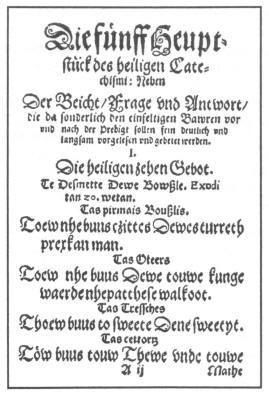 Die fünff Heupt-
stück des heiligen Cate-
chismi: Neben
Der Beicht/Frage vnd Antwort/
die da sonderlich den einfeltigen Bawren vor
vnd nach der Predigt sollen fein deutlich vnd
langsam vorgelesen vnd gebetet werden.
I.
Die heiligen zehen Gebot.
Te Desmette Dewe Bowßle. Exodi
tan 20. wetan.
Tas pirmais Boußlis.
Toew nhe buus czittes Dewes turreth
prexkan man.
Tas Oteers
Toew nhe buus Dewe touwe kunge
waerde nhepatthese walkoot.
Tas Tressches
Thoew buus to sweete Dene sweetyt.
Tas cettortz
Töw buus touw Thewe vnde touwe
A ij
Mathe